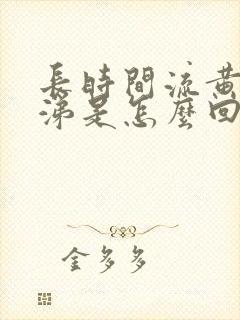 長時間流黃
涕是怎麼回
金多多